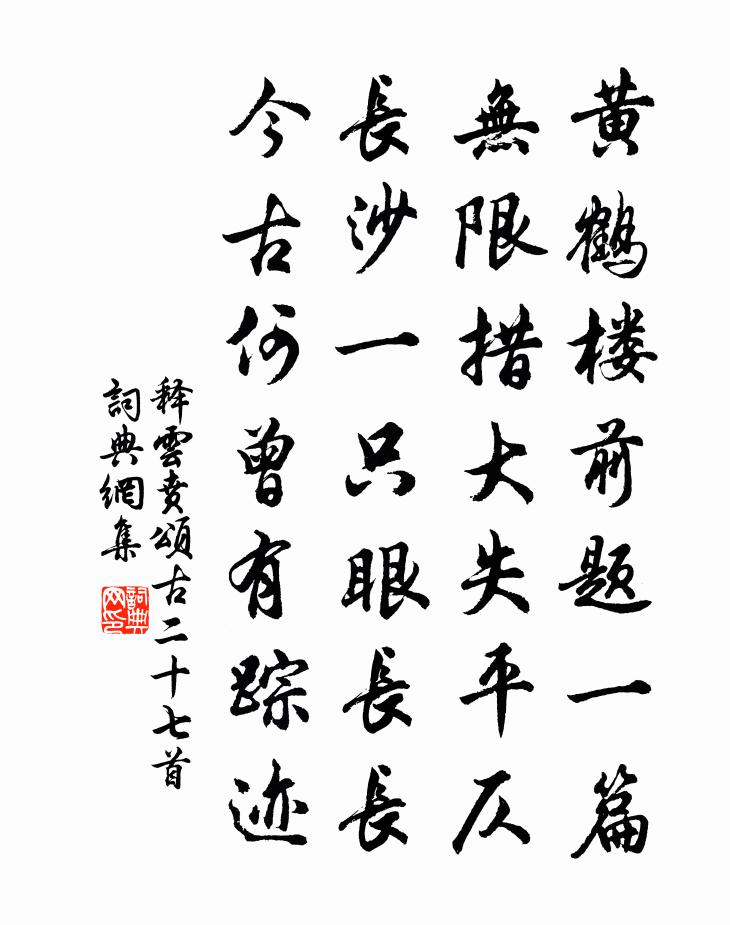 黄鹤楼前题一篇
無限措大失平仄
長沙一只眼長長
今古何曾有踪迹
释雲賁頌古二十七首
詞典網集
詞典
网印